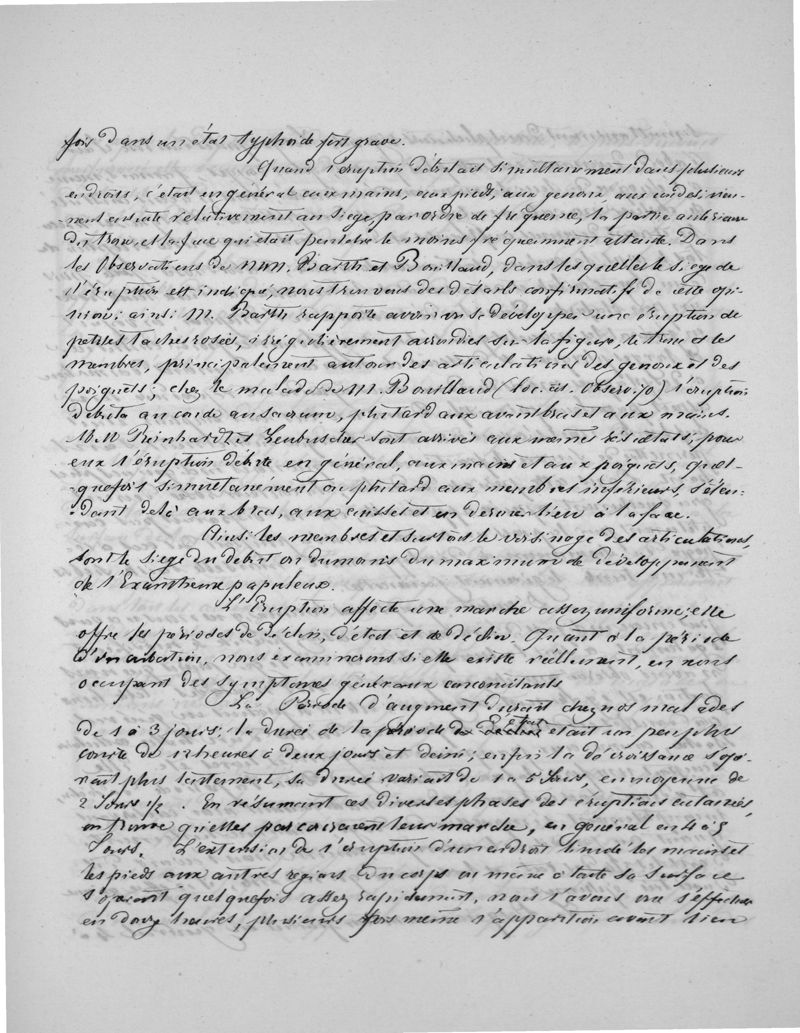 fois dans un état typhoïde fort grave.
Quand l'éruption débutait simultanément dans plusieurs
endroits, c'était en général aux mains, aux pieds, aux genoux, aux coudes; vien-
-nent ensuite relativement au siège, par ordre de fréquence, la partie antérieure
du tronc, et la face qui était peut etre le moins fréquemment atteinte. Dans
les Observations de MM. Barth et Bouillaud, dans lesquelles le siège de
l'éruption est indiqué, nous trouvons des détails confirmatifs de cette opi-
nion; ainsi M. Barth rapporte avoir vu se développer une éruption de
petites taches rosées, irrégulièrement arrondies sur la figure, le tronc et les
membres, principalement autour des articulations des genoux et des
poignets; chez le malade de M. Bouillaud (loc. cit. Observ. 70) l'éruption
débuta au coude au sacrum, plus tard aux avant bras et aux mains.
M.M Reinhardt et Leubuscher sont arrivés aux memes résultats; pour
eux l'éruption débute en général, aux mains et aux poignets, quel-
-quefois simultanément ou plus tard aux membres inférieurs, s'éten-
-dant de là aux bras, aux cuisses et en dernier lieu à la face.
Ainsi les membres et surtout le voisinage des articulations,
sont le siège du début ou du moins du maximum de développement
de l'Exanthème papuleux.
L'Eruption affecte une marche assez uniforme; elle
offre les périodes de déclin, d'état et de déclin. Quant à la période
d'incubation, nous examinerons si elle existe réellement, en nous
occupant des symptomes généraux concomitants
La Période d'augment durait chez nos malades
de 1 à 3 jours; la durée de la période d'Etat était un peu plus
courte de 12 heures à deux jours et demi; enfin la décroissance s'opé-
rait plus lentement, sa durée variait de 1 à 5 Jours, en moyenne de
2 Jours 1/2. En résumant ces diverses phases des éruptions cutanées,
on trouve qu'elles parcouraient leur marche, en général en 4 à 5
Jours. L'extension de l'éruption d'un endroit limité les mains et
les pieds aux autres régions du corps ou meme à toute sa surface
s'opérait quelquefois assez rapidement, nous l'avons vu s'effectuer
en douze heures, plusieurs fois meme l'apparition avait lieu